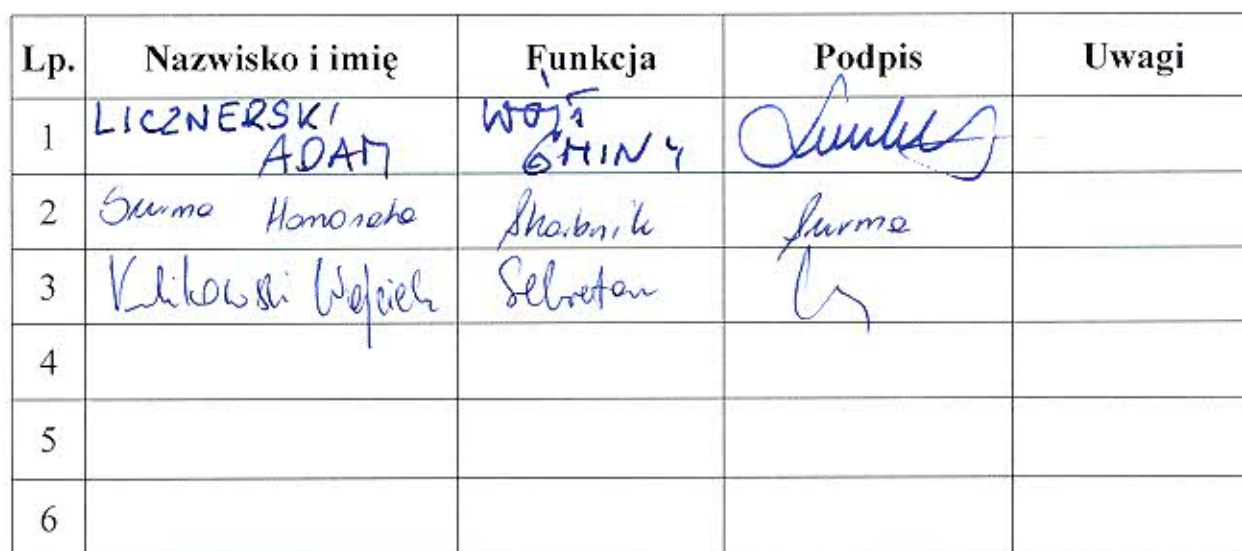 Lp. Nazwisko i imię Funkcja Podpis Uwagi
1 LICZNERSKI ADAM WÓJT GMINY
2 Surma Honorata Skarbnik Surma
3 Kulikowski Wojciech Sekretarz
4
5
6